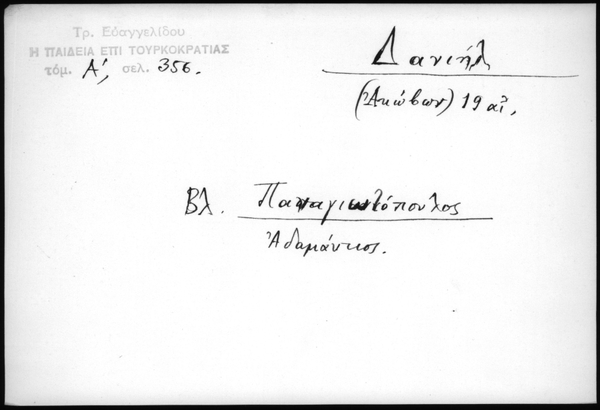 Τρ. Εὐαγγελίδου
Η ΠΑΙΔΕΙΑ ΕΠΙ ΤΟΥΡΚΟΚΡΑΤΙΑΣ
τόμ. Α', σελ. 356.
Δανιήλ
(Ἀκώβων) 19 αἰ.
Βλ. Παναγιωτόπουλος
Ἀδαμάντιος.